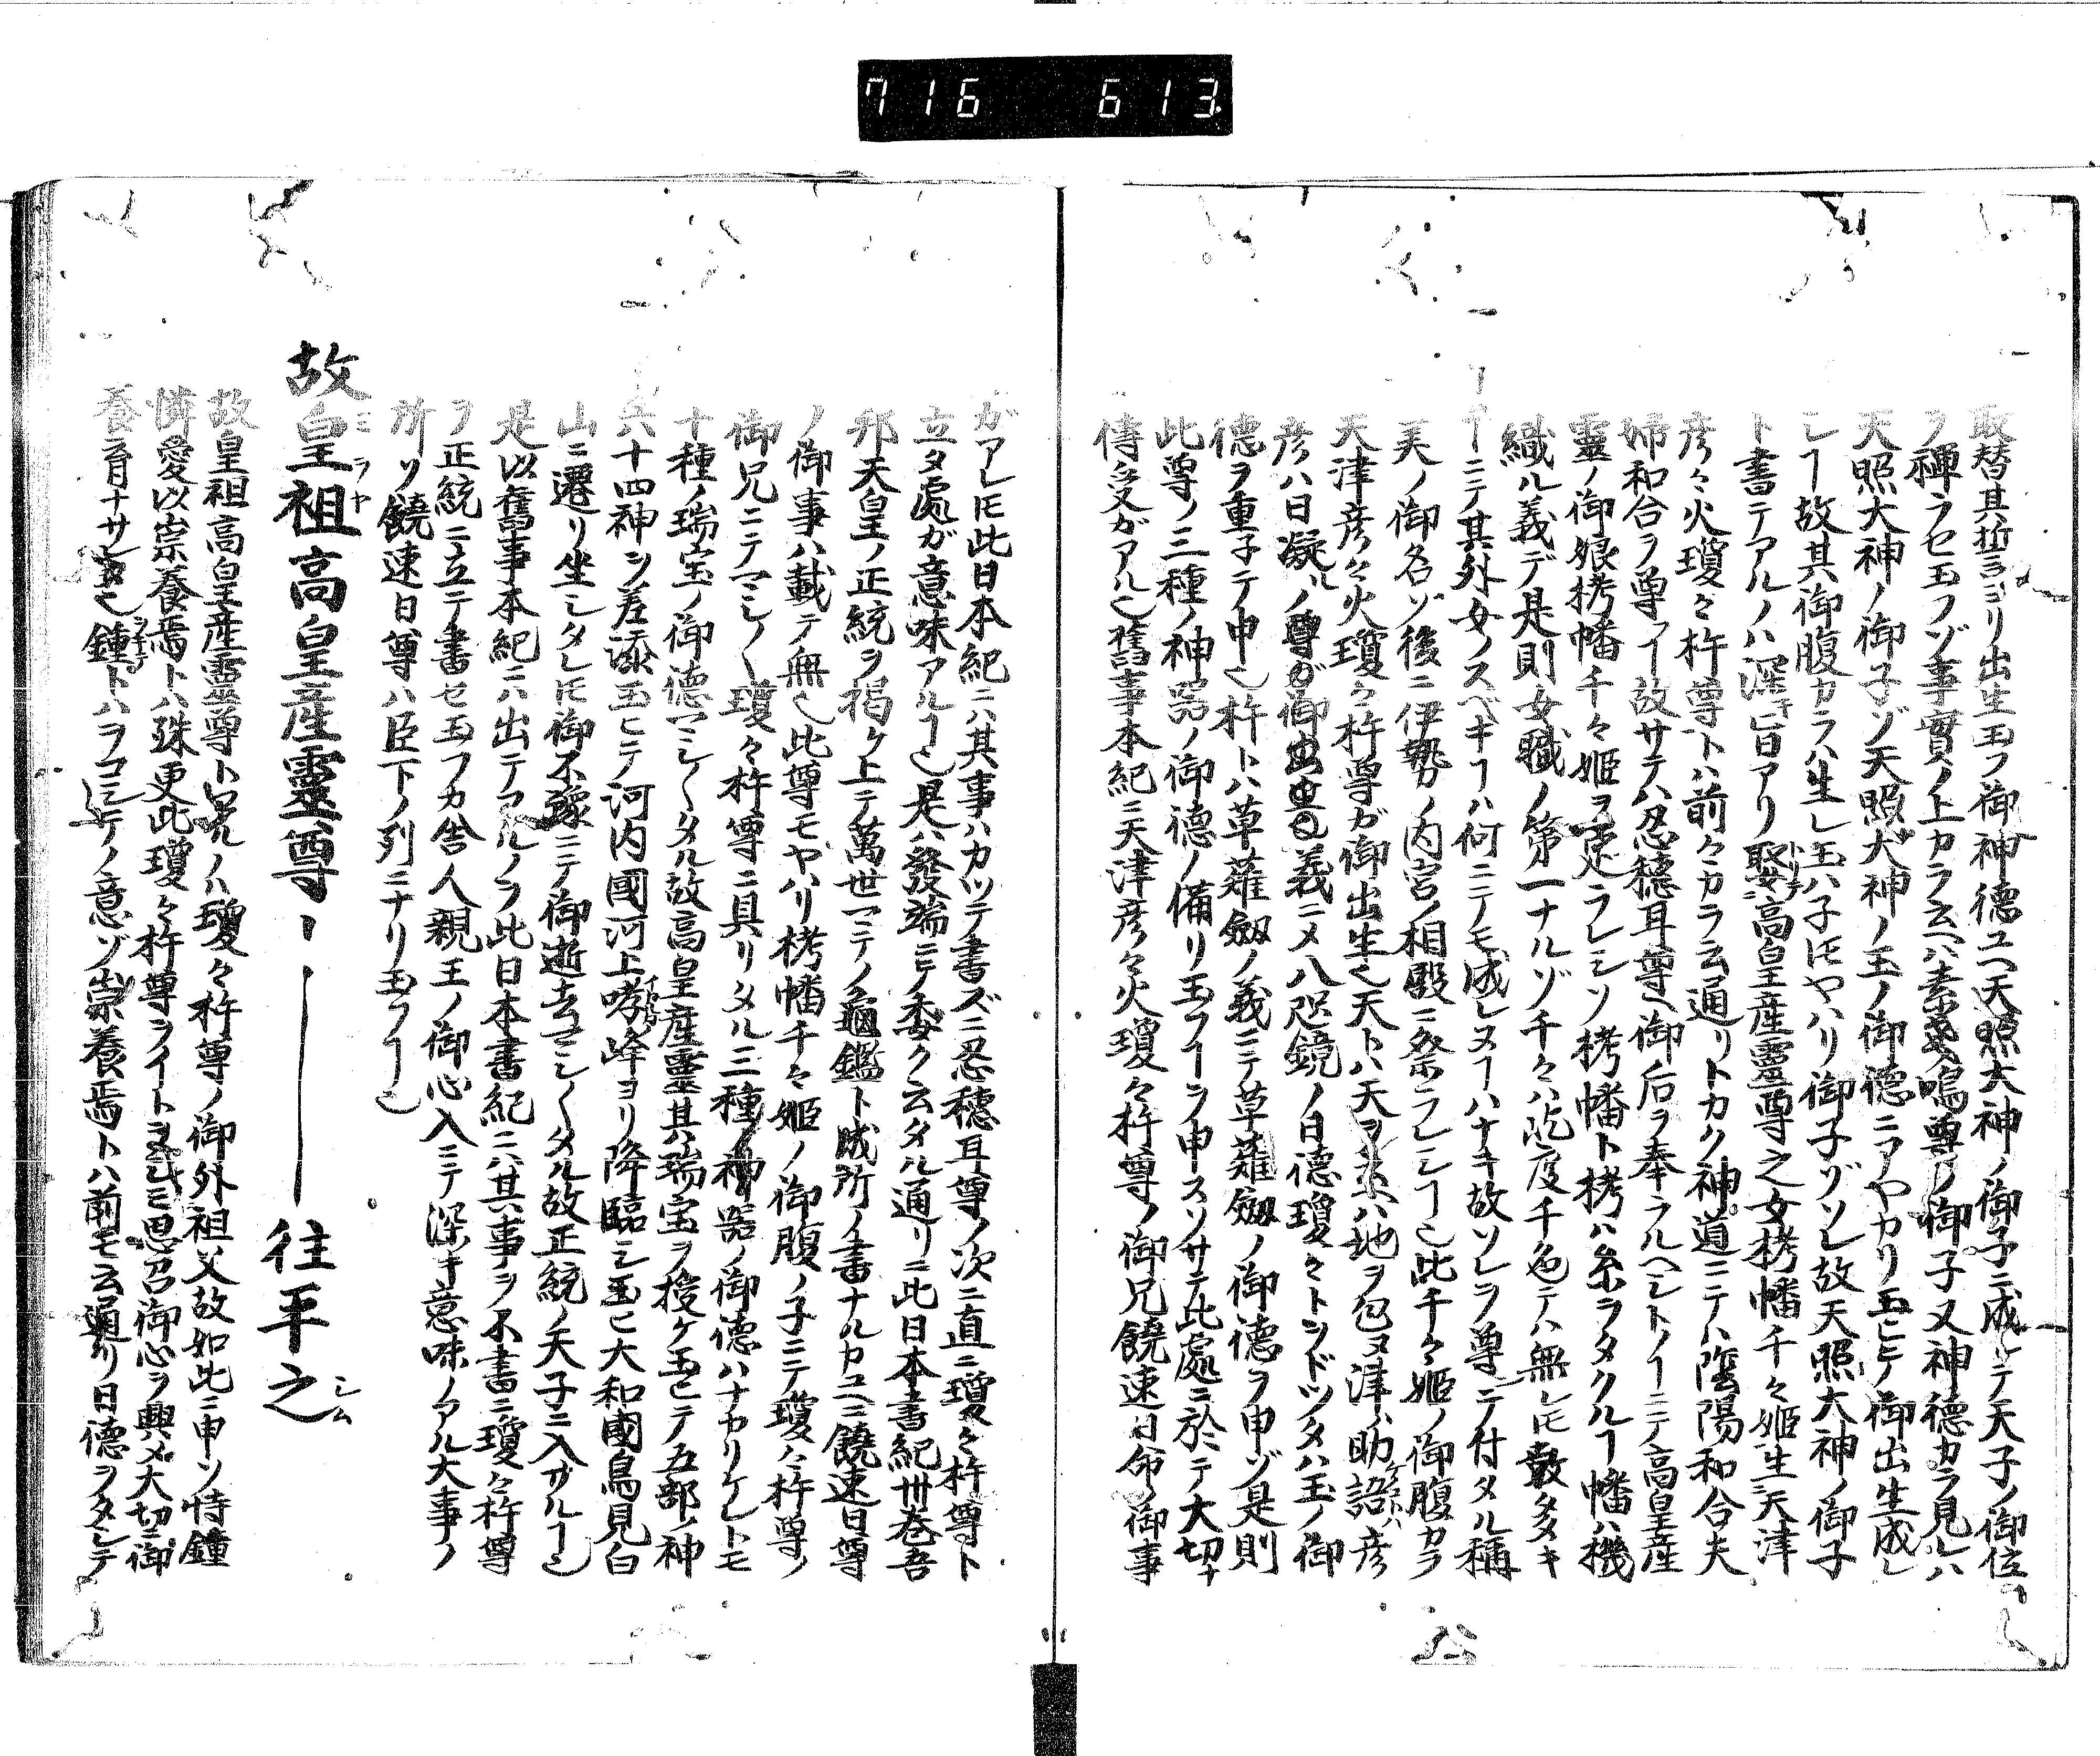 716 613
取替其折ヨリ出生玉フ御神德ユヘ天照大神ノ御子ニ成シテ天子ノ御位
ヲ禪ラセ玉フゾ事實ノ上カラ云ヘハ素戔嗚尊ノ御子又神德カラ見レハ
天照大神ノ御子ゾ天照大神ノ玉ノ御德ニアヤカリ玉ヒテ御出生成レ
シヿ故其御腹カラハ生レ玉ハ子ヒヤハリ御子ゾソレ故天照大神ノ御子
ト書テアルノハ深キ旨アリ娶高皇産靈尊之女栲幡千々姫生天津
彦々火瓊々杵尊トハ前クカラ云通リトカク神道ニテハ陰陽和合夫
婦和合ヲ尊フヿ故サテハ忍穗耳尊ヘ御后ヲ奉ラルヘシトノヿニテ高皇産
靈ノ御娘栲幡千々姫ヲ定ラレシソ栲幡ト栲ハ糸ヲタクルヿ幡ハ機
織ル義デ是則女職ノ第一ナルゾ千々ハ迄度千色テハ無レ𪜈數多キ
ヿニテ其外女ノスベキヿハ何ニテモ成レヌヿハナキ故ソレヲ尊ニテ付タル稱
美ノ御名ゾ後ニ伊勢ノ内宮ノ相殿ニ祭ラレシヿ也此千々姫ノ御腹カラ
天津彦々火瓊々杵尊ガ御出生也天トハ天ヲ云ハ地ヲ包ヌ津ハ助語彦
彦ハ日凝ルノ尊ガ御出生ノ義ニメ八咫鏡ノ日德瓊々トンドツタハ玉ノ御
德ヲ重子テ申也杵トハ草薙劔ノ義ニテ草薙劔ノ御德ヲ申ゾ是則
此尊ノ三種ノ神器ノ御德ノ備リ玉フヿヲ申スソサテ此處ニ於テ大切ナ
傳受ガアル也舊事本紀ニ天津彦々火瓊々杵尊ノ御兄饒速日命ノ御事
ガアレ𪜈此日本紀ニハ其事ハカツテ書ズニ忍穗耳尊ノ次ニ直ニ瓊々杵尊ト
立タ處ガ意味アルヿ也是ハ發端ニテノ委ク云タル通リニ此日本書紀卅卷吾
邦天皇ノ正統ヲ揭ケ上テ萬世マテノ龜鑑ト成所ノ書ナルカユヘニ饒速日尊
ノ御事ハ載テ無也此尊モヤハリ栲幡千々姫ノ御腹ノ子ニテ瓊々杵尊ノ
御兄ニテマシ〳〵瓊々杵尊ニ具リタル三種ノ神器ノ御德ハナカリケレトモ
十種ノ瑞宝ノ御德マシ〳〵タル故高皇産靈其瑞宝ヲ授ケ玉ヒテ五部ノ神
六十四神ヲ差添玉ヒテ河内國河上哮峰ヨリ降臨シ玉ヒ大和國鳥見白
山ニ遷リ坐シタレ𪜈御不豫ニテ御逝去マシ〳〵タル故正統ノ天子ニ入ザルヿ也
是以舊事本紀ニハ出テアルノヲ此日本書紀ニハ其事ヲ不書ニ瓊々杵尊
ヲ正統ニ立テ書セ玉フカ舎人親王ノ御心入ニテ深キ意味ノアル大事ノ
所ソ饒速日尊ハ臣下ノ列ニナリ玉フヿ也
故皇祖高皇産靈尊ーー往平之
ミヲヤ
シム
故皇祖高皇産靈尊ト宛ルノハ瓊々杵尊ノ御外祖父故如此ニ申ソ特鍾
憐愛以崇養焉トハ殊更此瓊々杵尊ヲイトヲシミ思召御心ヲ興メ大切ニ御
養育ナサルヽ也鍾トハヲコシテノ意ゾ崇養焉トハ前モ云通リ日德ヲタレテ